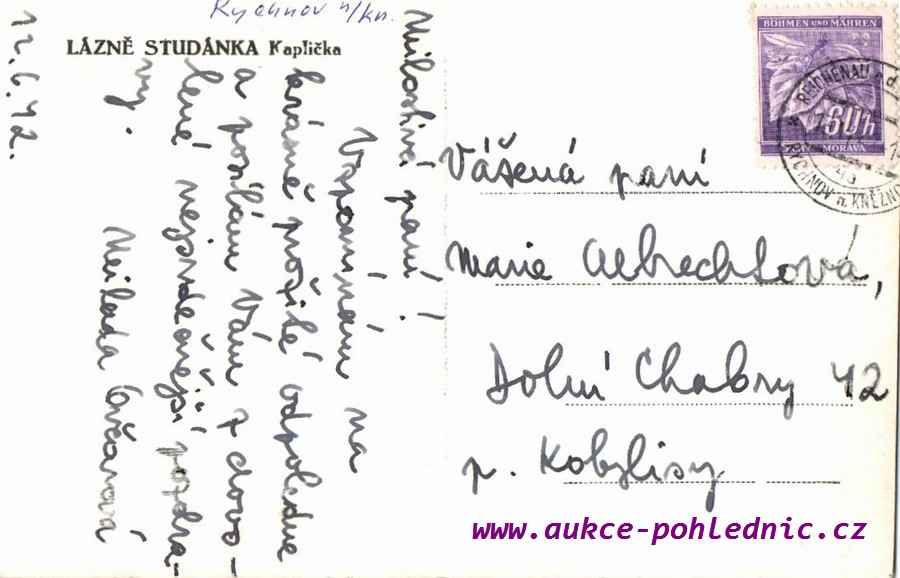 Rychnov n/kn.
LÁZNĚ STUDÁNKA Kaplička
12.6.42.
Milostivá paní!
Vzpomínám na
krásně prožité odpoledne
a posílám Vám z dovo-
lené nejsrdečnější pozdra-
vy.
Milada Ovčarová
BÖHMEN UND MÄHREN
60h
MORAVA
REICHENAU a.d.
RYCHNOV n. KNĚŽNOU
Vášená paní
Marie Albrechtová,
Dolní Chabry 42
p. Kobylisy
www.aukce-pohlednic.cz